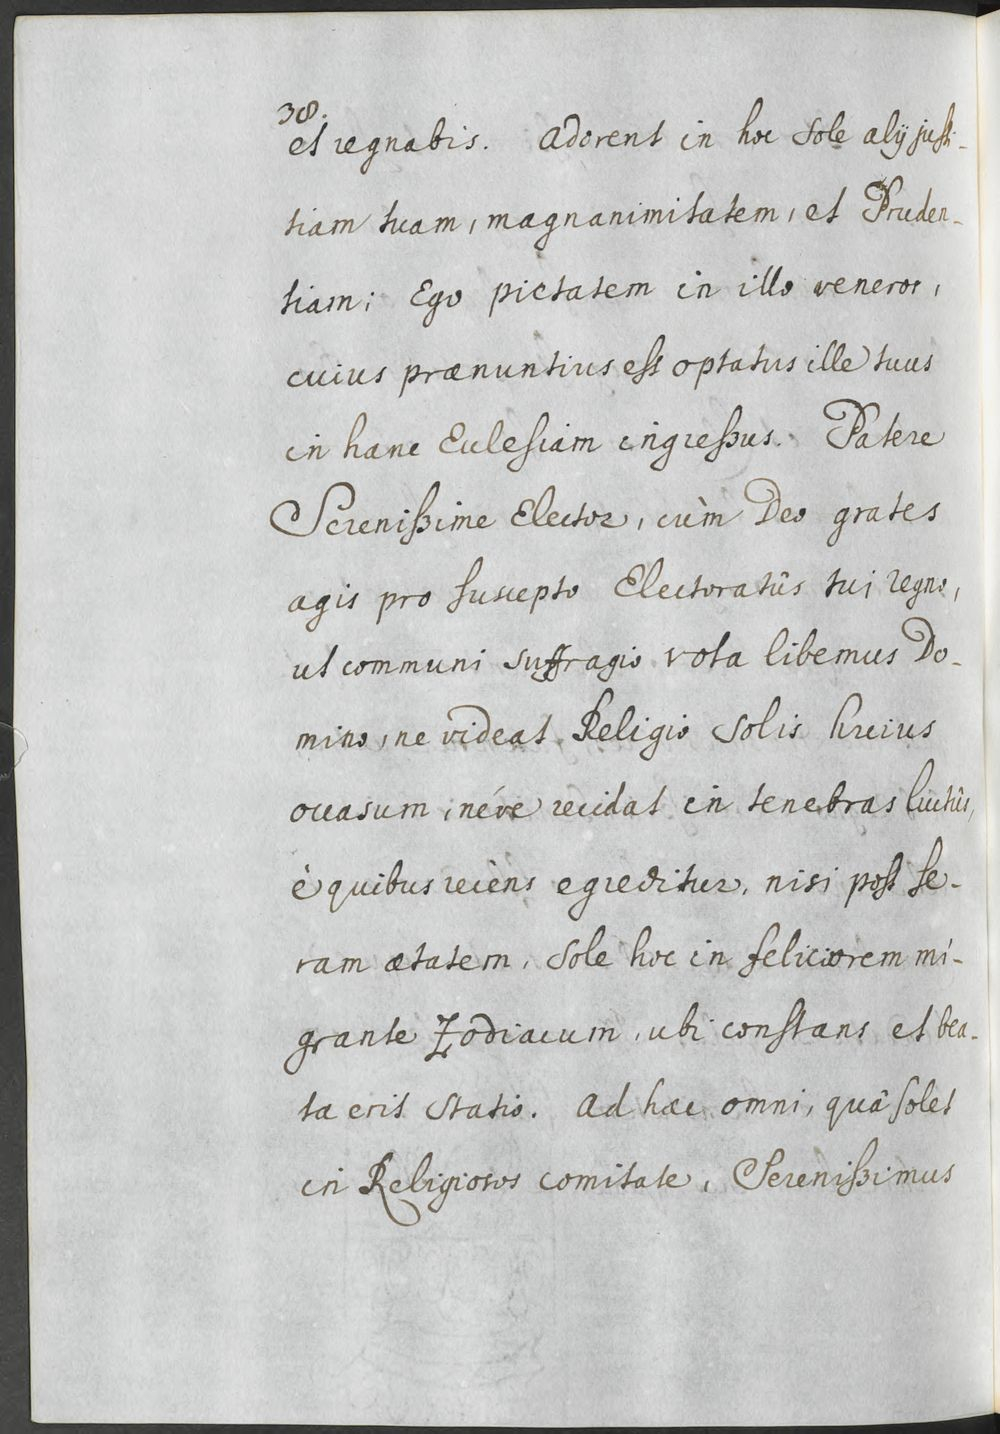 38.
et regnabis. Adorent in hoc Sole alij justi-
tiam tuam, magnanimitatem, et Pruden-
tiam; Ego pietatem in illo veneror,
cuius prænuntius est optatus ille tuus
in hanc Ecclesiam ingressus. Patere
Serenissime Elector, cùm Deo grates
agis pro suscepto Electoratûs tui regno,
ut communi suffragio vota libemus Do-
mino, ne videat Religio Solis huius
occasum, néve recidat in tenebras luctûs,
è quibus recèns egreditur, nisi post se-
ram ætatem, Sole hoc in feliciorem mi-
grante Zodiacum, ubi constans et bea-
ta erit Statio. Ad hæc omni, quâ solet
in Religiosos comitate, Serenissimus